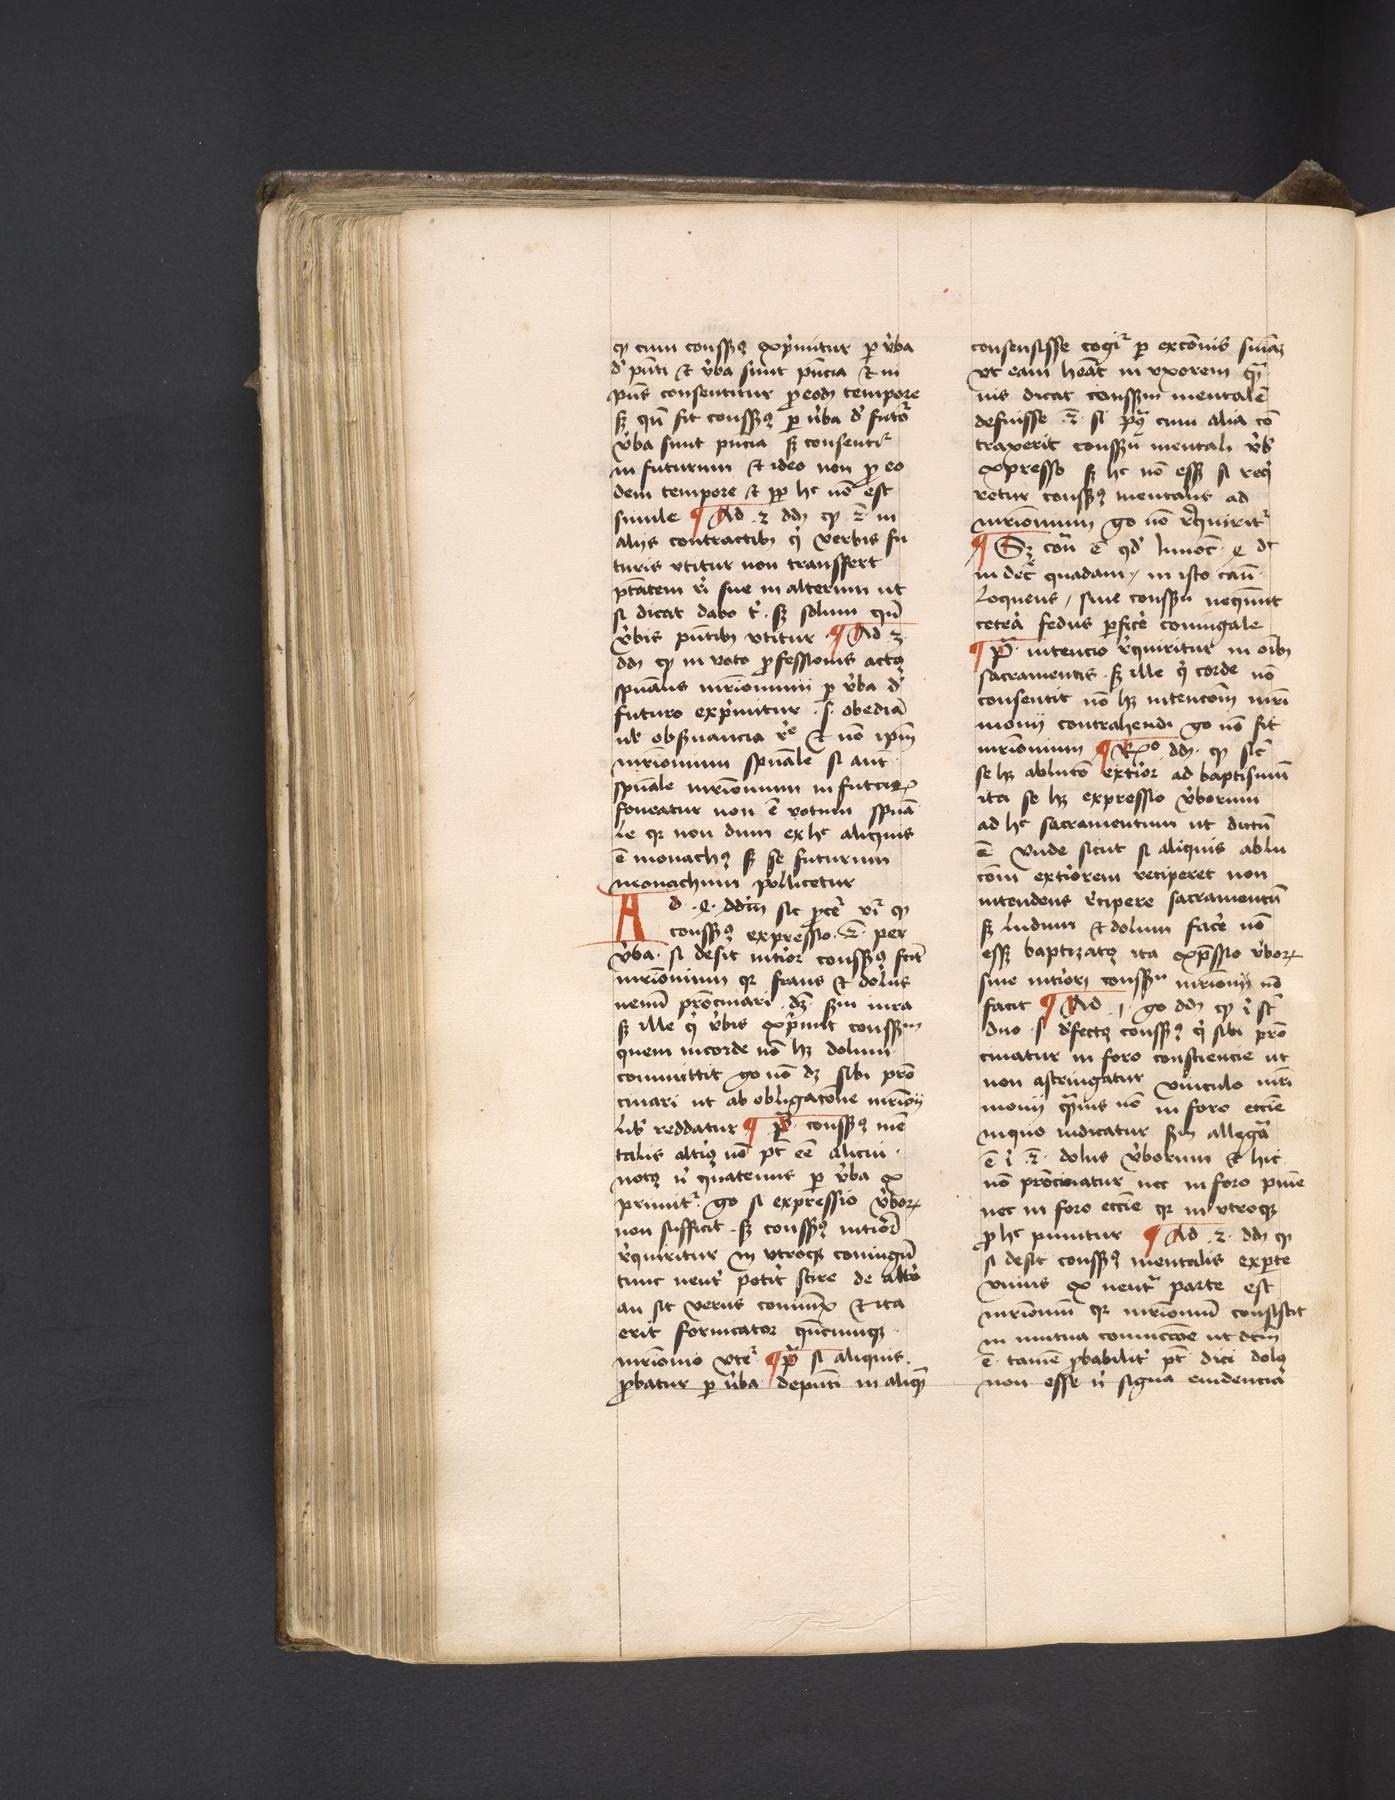 cum consensus exprimitur per verba
de presenti et verba sunt presencia et in
presens consentitur pro eodem tempore
sed quando fit consensus per verba de futuro
verba sunt presencia sed consentitur
in futurum et ideo non pro eo
dem tempore et propter hoc non est
simile ¶ Ad 2 in
aliis contractibus qui verbis fu
turis utitur non transfert
potestatem rei sue in alterum ut
si dicat dabo tibi. sed solum quando
verbis presentibus utitur ¶ Ad 3
in voto professionis actus
spiritualis matrimonii per verba de
futuro exprimitur .s. obediam
vel observancia regule et non ipsum
matrimonium spirituale si autem
spirituale matrimonium in futurum
foveatur non est votum spiritua
le quia non dum ex hoc aliquis
est monachus sed se futurum
monachum pollicetur
Ad sic
consensus expressio per
verba si desit interior consensus facit
matrimonium quia fraus et dolus
nemini patrocinari debet secundum iura
sed ille qui verbis exprimit consensum
quem in corde non habet dolum
committit ergo non debet sibi patro
cinari ut ab obligatione matrimonii
liber reddatur ¶ Preterea consensus men
talis alterius non potest esse alicui
notus nisi quatenus per verba ex
primitur ergo si expressio verborum
non sufficit sed consensus interior
requiritur in utroque coniugum
tunc neuter poterit scire de altero
an sit verus coniunx et ita
erit fornicator quandocumque
matrimonio utitur ¶ Preterea si aliquis
probatur per verba de presenti in aliquam
consensisse cogitur per excommunicationis sententiam
ut eam habeat in uxorem quam
vis dicat consensum mentalem
defuisse si postea cum alia con
traxerit consensu mentali verbis
expresso sed hoc non esset si requi
retur consensus mentalis ad
matrimonium ergo non requiritur
¶ Sed contra est quod Innoc.
in decretali quadam in isto casu
loquens / sine consensu nequeunt
cetera fedus perficere coniugale
¶ Preterea intencio requiritur in omnibus
sacramentis sed ille qui corde non
consentit non habet intencionem matri
monii contrahendi ergo non fit
matrimonium ¶ Responsio sicut
se habet ablutio exterior ad baptismum
ita se habet expressio verborum
ad hoc sacramentum ut dictum
est unde sicut si aliquis ablu
tionem exteriorem reciperet non
intendens recipere sacramentum
sed ludum et dolum facere non
esset baptizatus ita expressio verborum
sine interiori consensu matrimonium non
facit ¶ Ad 1 ergo ibi sunt
duo .s. defectus consensus qui sibi patro
cinatur in foro consciencie ut
non astringatur vinculo matri
monii quamvis non in foro ecclesie
in quo iudicatur secundum allegata
dolus verborum et hic
non patrocinatur nec in foro penitencie
nec in foro ecclesie quia in utroque
pro hoc punitur ¶ Ad 2
si desit consensus mentalis ex parte
unius ex neutra parte est
matrimonium quia matrimonium consistit
in mutua coniunctione ut dictum
est tamen probabiliter potest dici dolus
non esse nisi signa evidencia